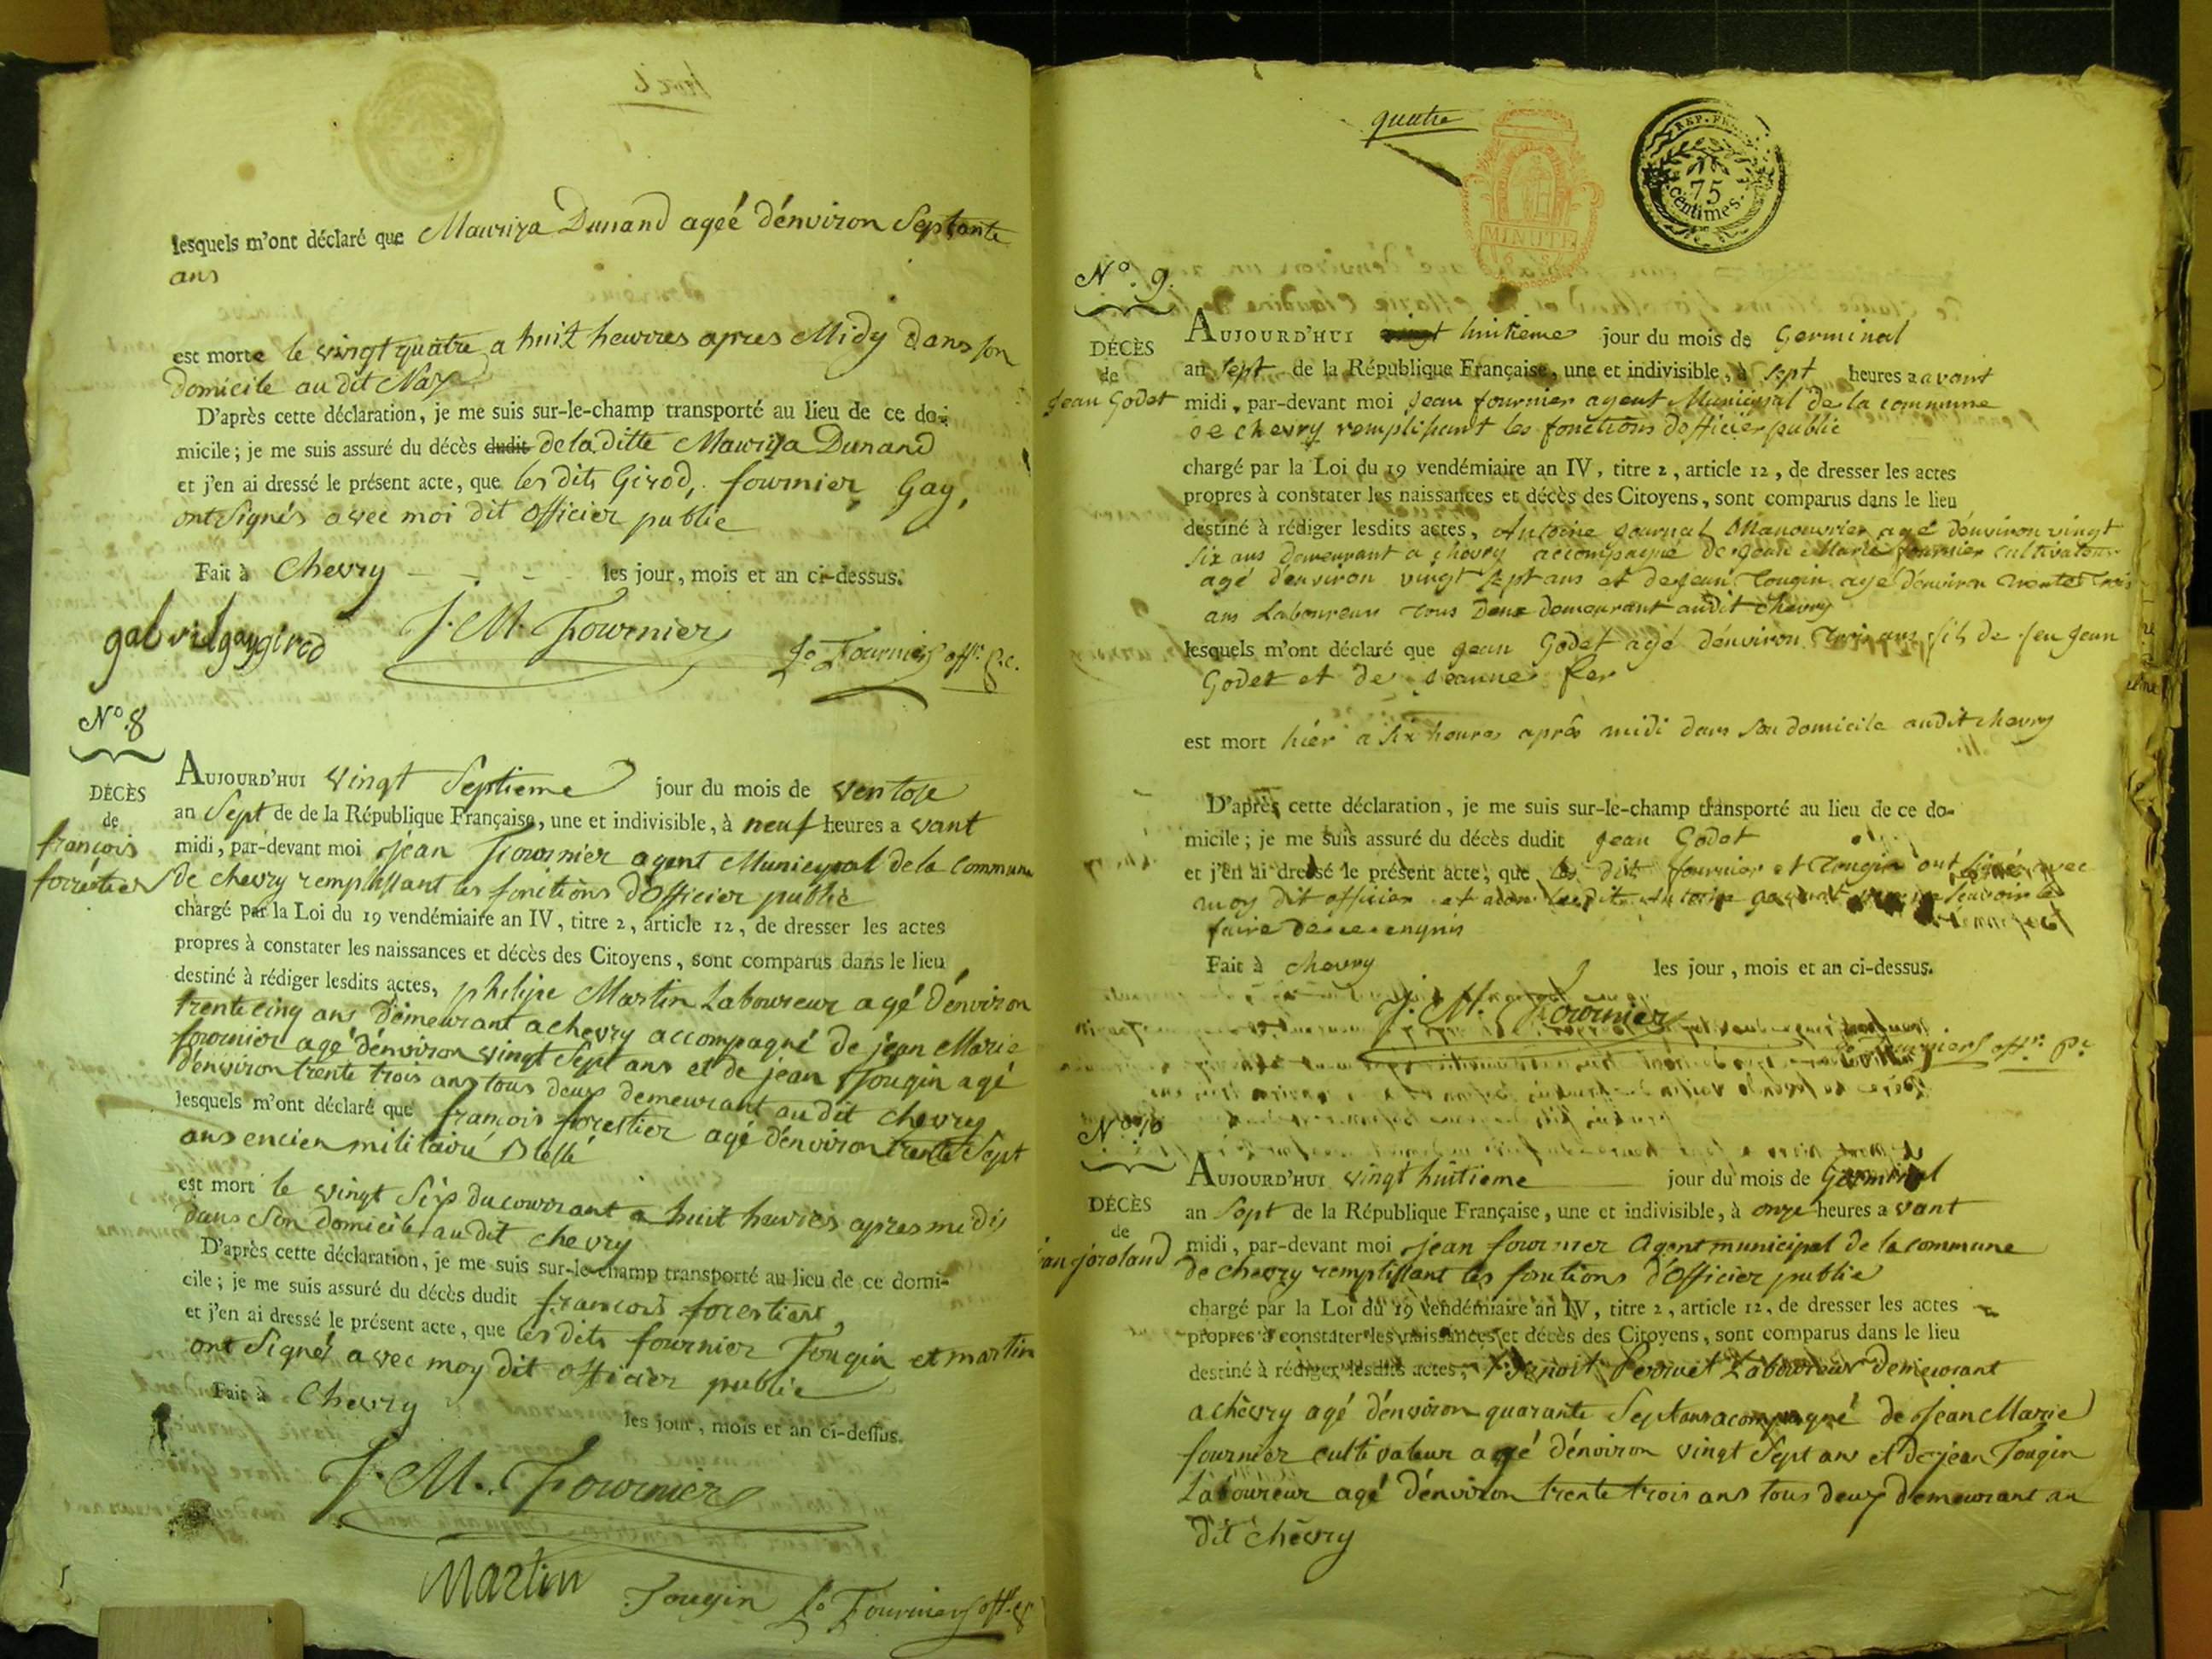 lesquels m'ont déclaré que Mauriza Dunand ageé d'énviron Septante
ans
est morte le vingt quatre a huit heurres apres Midy Dans son
Domicile au dit Naz
D'après cette déclaration, je me suis sur-le-champ transporté au lieu de ce do-
micile; je me suis assuré du décès dudit de la ditte Mauriza Dunand
et j'en ai dressé le présent acte, que les dits Girod, fournier Gay,
ont Signés avec moi dit officier public
Fait à Chevry les jour, mois et an ci-dessus.
J. M. Fournier
N° 8
DÉCÈS
de
françois
forrestier
AUJOURD'HUI vingt Septieme jour du mois de ventose
an Sept de de la République Française, une et indivisible, à neuf heures a vant
midi, par-devant moi jéan Fournier agent Municypal de la Commune
de chevry remplissant les fonctions d'Officier public
chargé par la Loi du 19 vendémiaire an IV, titre 2, article 12, de dresser les actes
propres à constater les naissances et décès des Citoyens, sont comparus dans le lieu
destiné à rédiger lesdits actes, philipe Martin Laboureur agé d'énviron
trente cinq ans démeurant a chevry accompagné de jean Marie
fournier agé d'énviron vingt Sept ans et de jean Fougin agé
d'énviron trente trois ans tous deux demeurant au dit chevry
lesquels m'ont déclaré que françois forestier agé d'énviron trente Sept
ans encien militairé Blessé
est mort le vingt Six du courrant a huit heurres apres midy
dans Son domicile au dit chevry
D'après cette déclaration, je me suis sur-le-champ transporté au lieu de ce domi-
cile; je me suis assuré du décès dudit francois forestier
et j'en ai dressé le présent acte, que les dits fournier Fougin et martin
ont Signés avec moy dit officier public
Fait à Chevry les jour, mois et an ci-dessus.
J. M. Fournier
Martin Fougin
quatre
MINUTE
REP. FRA
75
centimes.
N° 9.
DÉCÈS
de
Jean Godet
AUJOURD'HUI vingt huitieme jour du mois de Germinal
an sept de la République Française, une et indivisible, à sept heures a avant
midi, par-devant moi Jean fournier agent Municipal de la commune
de chevry remplissant les fonctions d'officier public
chargé par la Loi du 19 vendémiaire an IV, titre 2, article 12, de dresser les actes
propres à constater les naissances et décès des Citoyens, sont comparus dans le lieu
destiné à rédiger lesdits actes, Antoine Manouvrier agé d'énviron vingt
six ans demeurant a chevry accompagné de Jean Marie fournier cultivateur
agé d'énviron vingt sept ans et de Jean Tougin agé d'énviron trente trois
ans Laboureur tous Deux demeurant audit chevry
lesquels m'ont déclaré que jean Godet agé d'énviron trois ans fils de feu Jean
Godet et de Jeanne fer
est mort hiér a six heures après midi dans son domicile audit chevry
D'après cette déclaration, je me suis sur-le-champ transporté au lieu de ce do-
micile; je me suis assuré du décès dudit Jean Godet
et j'en ai dressé le présent acte, que les dit fournier et Tougin ont signés avec
moy dit officier et
faire de ce enquis
Fait à chevry les jour, mois et an ci-dessus.
J. M. Fournier
N° 10
DÉCÈS
de
AUJOURD'HUI vingt huitieme jour du mois de Germinal
an Sept de la République Française, une et indivisible, à onze heures a vant
midi, par-devant moi jean fournier Agent municipal de la commune
de chevry remplissant les fontions d'Officier public
chargé par la Loi du 19 vendémiaire an IV, titre 2, article 12, de dresser les actes
propres à constater les naissances et décès des Citoyens, sont comparus dans le lieu
destiné à rédiger lesdits actes, Benoit Perruet Laboureur demeurant
a chèvry agé d'énviron quarante Sept ans acompagné de Jean Marie
fournier cultivateur agé d'énviron vingt Sept ans et de jean Tougin
Laboureur agé d'énviron trente trois ans tous deux demeurant au
dit chèvry